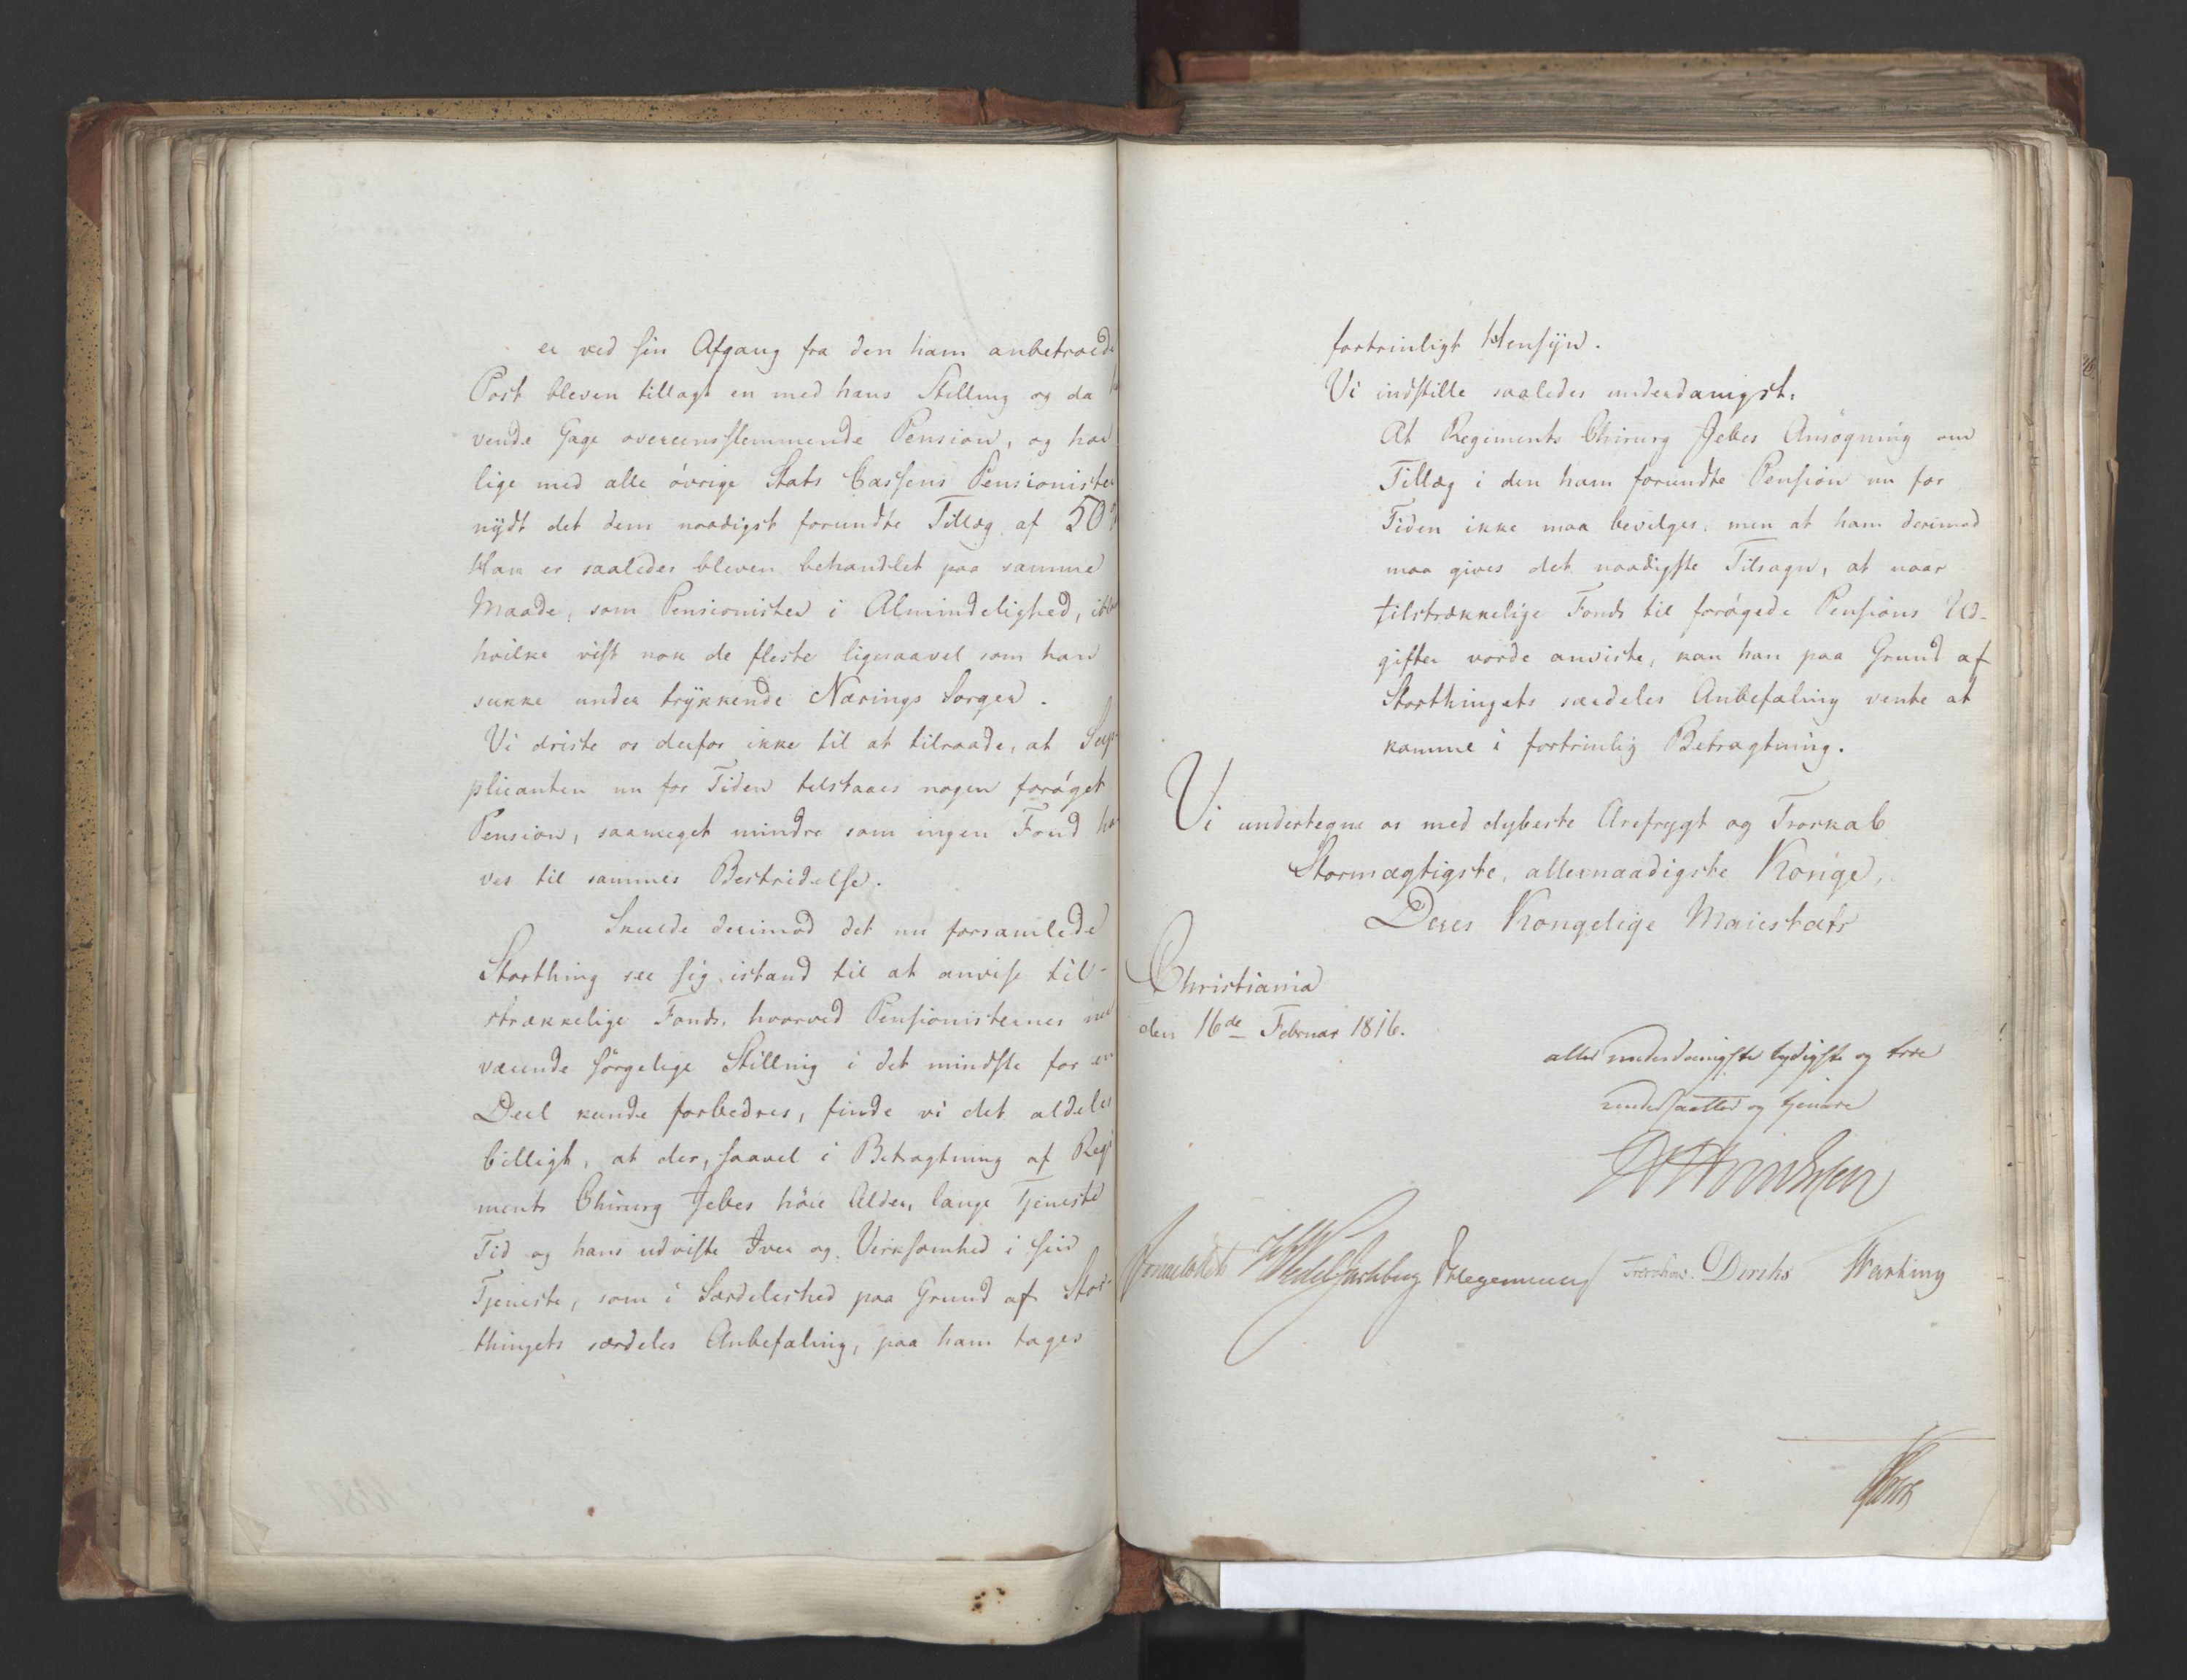 er ved sin Afgang fra den ham anbetroede
Post bleven tillagt en med hans Stilling og da
vende Gage overeensstemmende Pension, og har
lige med alle övrige Stats Cassens Pensionister
nydt det dem naadigst forundte Tillæg af 50
Han er saaledes bleven behandlet paa samme
Maade, som Pensionister i Almindelighed, iblandt
hvilke vist nok de fleste ligesaavel som han
sukke under trykkende Nærings Sorger.
Vi driste os derfor ikke til at tilraade, at Sup-
plicanten nu for Tiden tilstaaes nogen foröget
Pension, saameget mindre som ingen Fond ha
ves til sammes Bestridelse.
Skulde derimod det nu forsamlede
Storthing see sig istand til at anvise til-
strækkelige Fonds, hvorved Pensionisternes nu
værende sörgelige Stilling i det mindste for en
Deel kunde forbedres, finde vi det aldeles
billigt, at der, saavel i Betragtning af Regi
ments Chirurg Jebes höie Alder, lange Tjeneste
Tid og hans udviste Iver og Virksomhed i sin
Tjeneste, som i Særdeleshed paa Grund af Stor-
thingets særdeles Anbefaling, paa ham tages
fortrinligt Hensyn.
Vi indstille saaledes underdanigst:
At Regiments Chirurg Jebes Ansögning om
Tillæg i den ham forundte Pension nu for
Tiden ikke maa bevilges, men at ham derimod
maa gives det naadigste Tilsagn, at naar
tilstrækkelige Fonds til forögede Pensions Ud-
gifter vorde anviste, kan han paa Grund af
Storthingets særdeles Anbefaling vente at
komme i fortrinlig Betragtning.
Vi undertegne os med dybeste Ærefrygt og Troskab
Stormægtigste, allernaadigste Konge,
Deres Kongelige Maiestæts
Christiania
den 16de Februar 1816.
aller underdanigste lydigste og troe
undersaatter og tjenere
Sommerhielm HWedel Jarlsberg DHegermann Treschow. Diriks Harbing